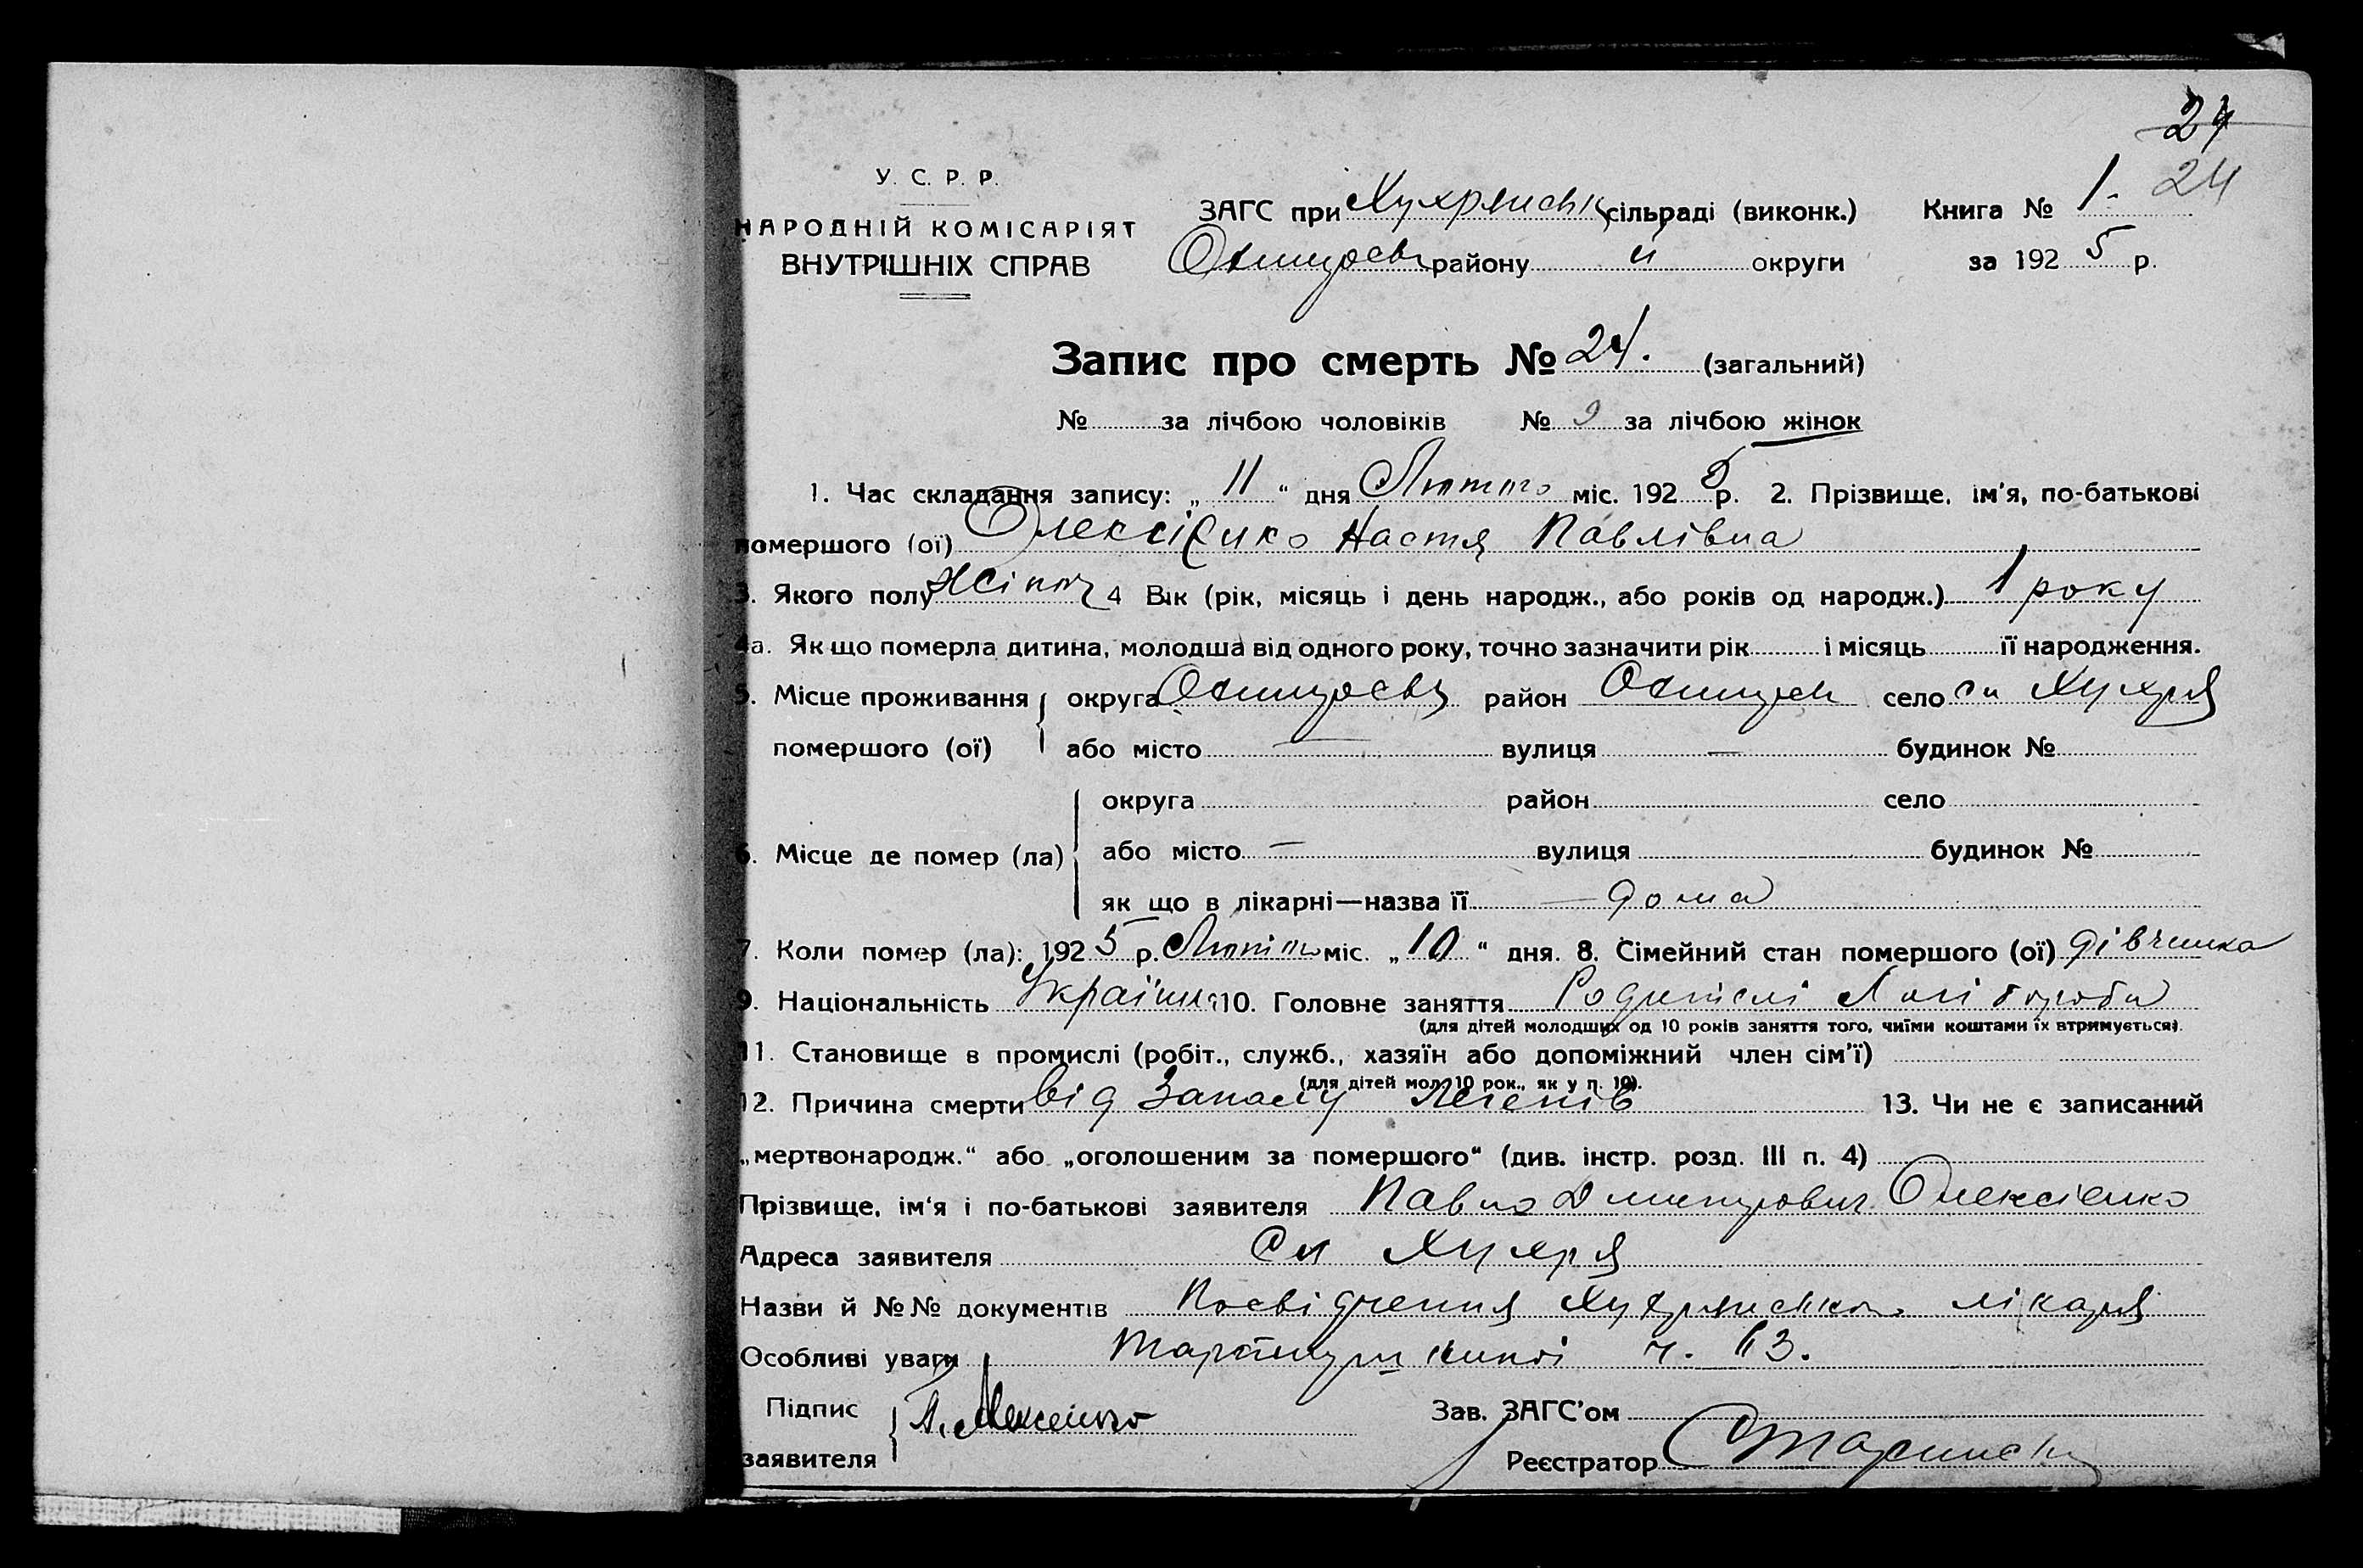 24
24
У. С. Р. Р.
НАРОДНІЙ КОМІСАРІЯТ
ВНУТРІШНІХ СПРАВ
ЗАГС при Хухрянськ сільраді (виконк.) Книга № 1.
Охтирськ району й округи за 1925 р.
Запис про смерть № 24. (загальний)
№ за лічбою чоловіків № 9 за лічбою жінок
1. Час складання запису: „11“ дня Лютого міс. 1925 р. 2. Прізвище, ім'я, по-батькові
помершого (ої) Олексієнко Настя Павлівна
3. Якого полу Жіноч 4 Вік (рік, місяць і день народж., або років од народж.) 1 року
4а. Як що померла дитина, молодша від одного року, точно зазначити рік і місяць її народження.
5. Місце проживання округа район село Хухря
помершого (ої) або місто — вулиця — будинок №
округа район село
6. Місце де помер (ла) або місто — вулиця будинок №
як що в лікарні—назва її — дома
7. Коли помер (ла): 1925 р. Лютого міс. „10“ дня. 8. Сімейний стан помершого (ої) дівчинка
9. Національність 10. Головне заняття Родителі
(для дітей молодших од 10 років заняття того, чиїми коштами їх втримується).
11. Становище в промислі (робіт., служб., хазяїн або допоміжний член сім'ї)
(для дітей мол. 10 рок., як у п. 10).
12. Причина смерти від Запалу Легенів 13. Чи не є записаний
„мертвонародж.“ або „оголошеним за помершого“ (див. інстр. розд. III п. 4)
Прізвище, ім'я і по-батькові заявителя Павло Дмитрович Олексієнко
Адреса заявителя Хухря
Назви й №№ документів Посвідчення лікаря
Особливі уваги ч. 13.
Підпис
заявителя
Зав. ЗАГС'ом
Реєстратор